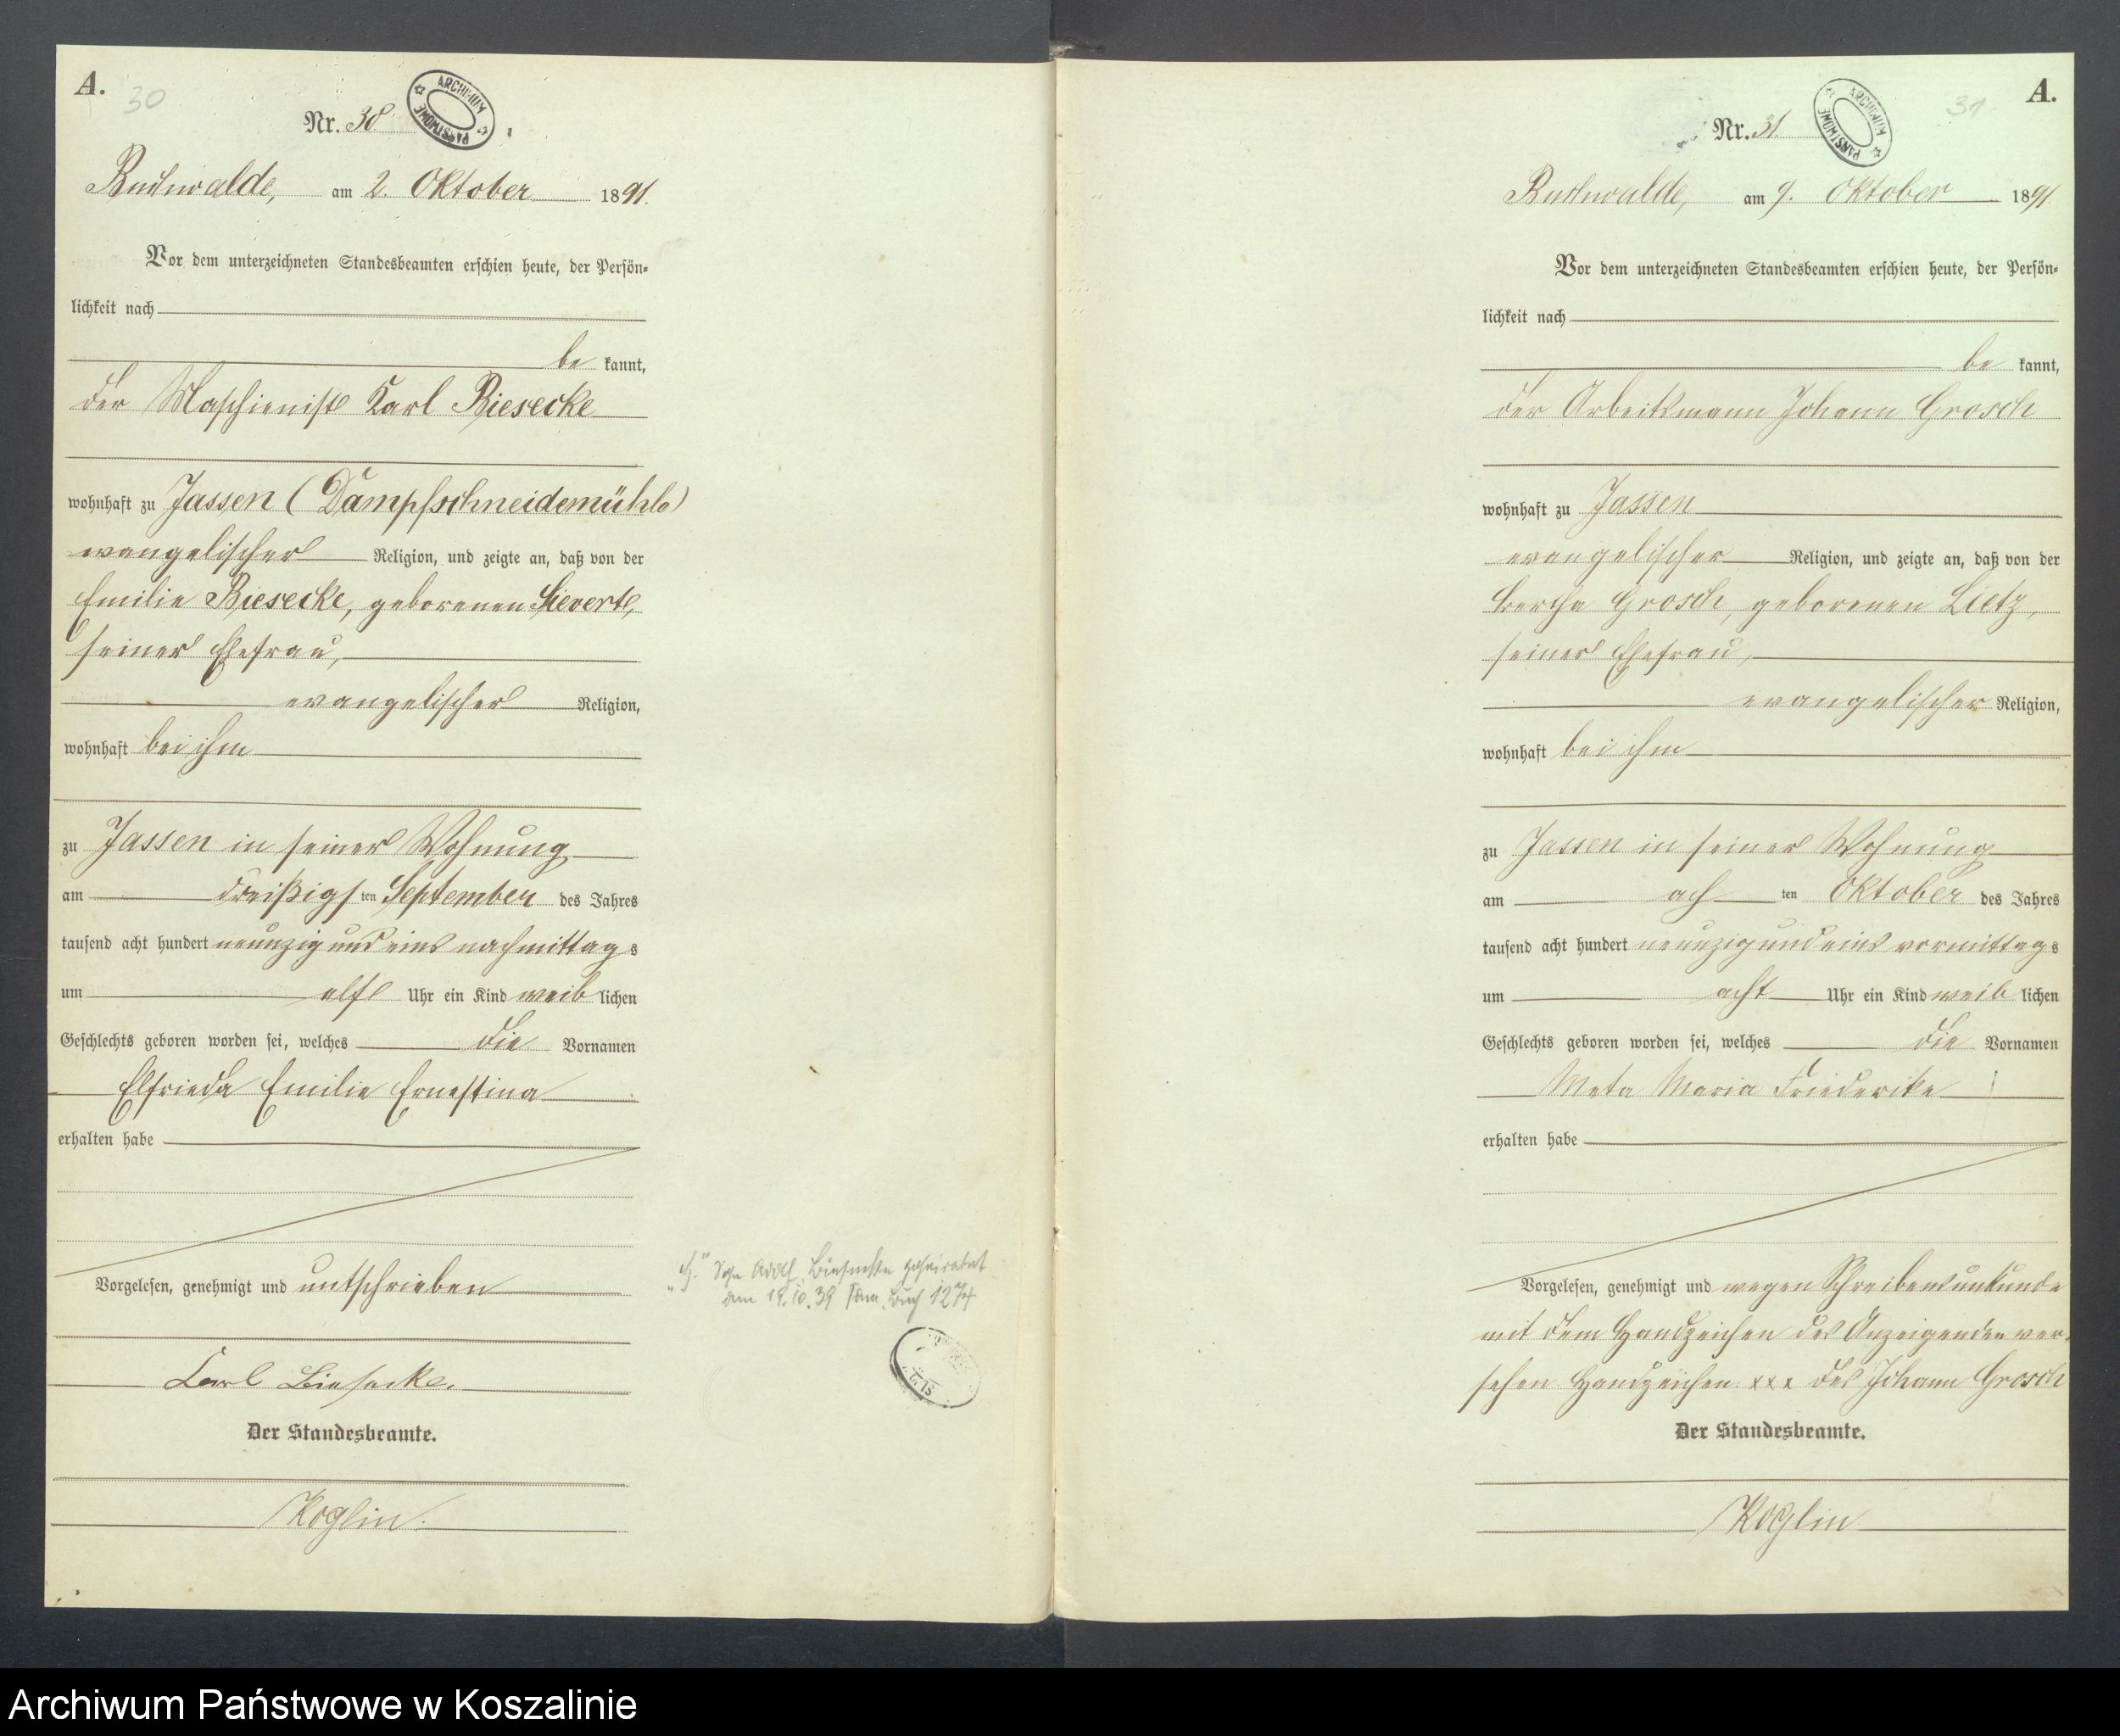 A.
30
Nr. 30
ARCHIWUM PAŃSTWOWE
Buchwalde, am 2. Oktober 1891.
Vor dem unterzeichneten Standesbeamten erschien heute, der Persön-
lichkeit nach
be kannt,
der Maschienist Karl Biesecke
wohnhaft zu Jassen (Dampfschneidemühle)
evangelischer Religion, und zeigte an, daß von der
Emilie Biesecke, geborenen Sievert,
seiner Ehefrau,
evangelischer Religion,
wohnhaft bei ihm
zu Jassen in seiner Wohnung
am dreißigsten September des Jahres
tausend acht hundert neunzig und eins nachmittags
um elf Uhr ein Kind weiblichen
Geschlechts geboren worden sei, welches die Vornamen
Elfrieda Emilie Ernestina
erhalten habe
Vorgelesen, genehmigt und untschrieben
Karl Biesecke.
Der Standesbeamte.
Koglin.
Sohn Adolf Biesecke geheiratet
am 19.10.39 Buch 1274
A.
31
Nr. 31
ARCHIWUM PAŃSTWOWE
Buchwalde, am 9. Oktober 1891
Vor dem unterzeichneten Standesbeamten erschien heute, der Persön-
lichkeit nach
be kannt,
der Arbeitsmann Johann Grosch
wohnhaft zu Jassen
evangelischer Religion, und zeigte an, daß von der
Bertha Grosch, geborenen Lietz,
seiner Ehefrau,
evangelischer Religion,
wohnhaft bei ihm
zu Jassen in seiner Wohnung
am achten Oktober des Jahres
tausend acht hundert neunzig und eins vormittags
um acht Uhr ein Kind weiblichen
Geschlechts geboren worden sei, welches die Vornamen
Meta Maria Friederike
erhalten habe
Vorgelesen, genehmigt und wegen Schreibensunkunde
mit dem Handzeichen des Anzeigenden ver-
sehen Handzeichen x x x des Johann Grosch
Der Standesbeamte.
Koglin.
Archiwum Państwowe w Koszalinie